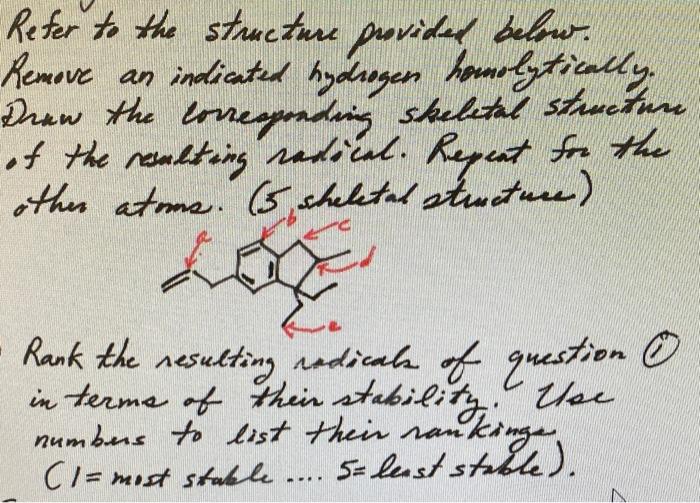 Refer to the structure provided below.
Remove an indicated hydrogen homolytically.
Draw the corresponding skeletal structure
of the resulting radical. Repeat for the
other atoms. (5 skeletal structure)
a b c
d
e
Rank the resulting radicals of question ①
in terms of their stability. Use
numbers to list their rankings
(1 = most stable .... 5 = least stable).